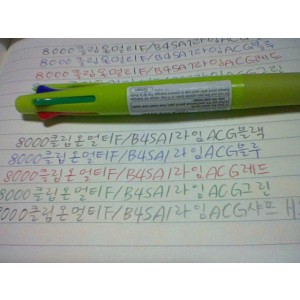 8000클립온멀티F/B4SA1라임ACG블랙
8000클립온멀티F/B4SA1라임ACG블루
8000클립온멀티F/B4SA1라임ACG레드
8000클립온멀티F/B4SA1라임ACG그린
8000클립온멀티F/B4SA1라임ACG블랙
8000클립온멀티F/B4SA1라임ACG블루
8000클립온멀티F/B4SA1라임ACG레드
8000클립온멀티F/B4SA1라임ACG그린
8000클립온멀티F/B4SA1라임ACG샤프